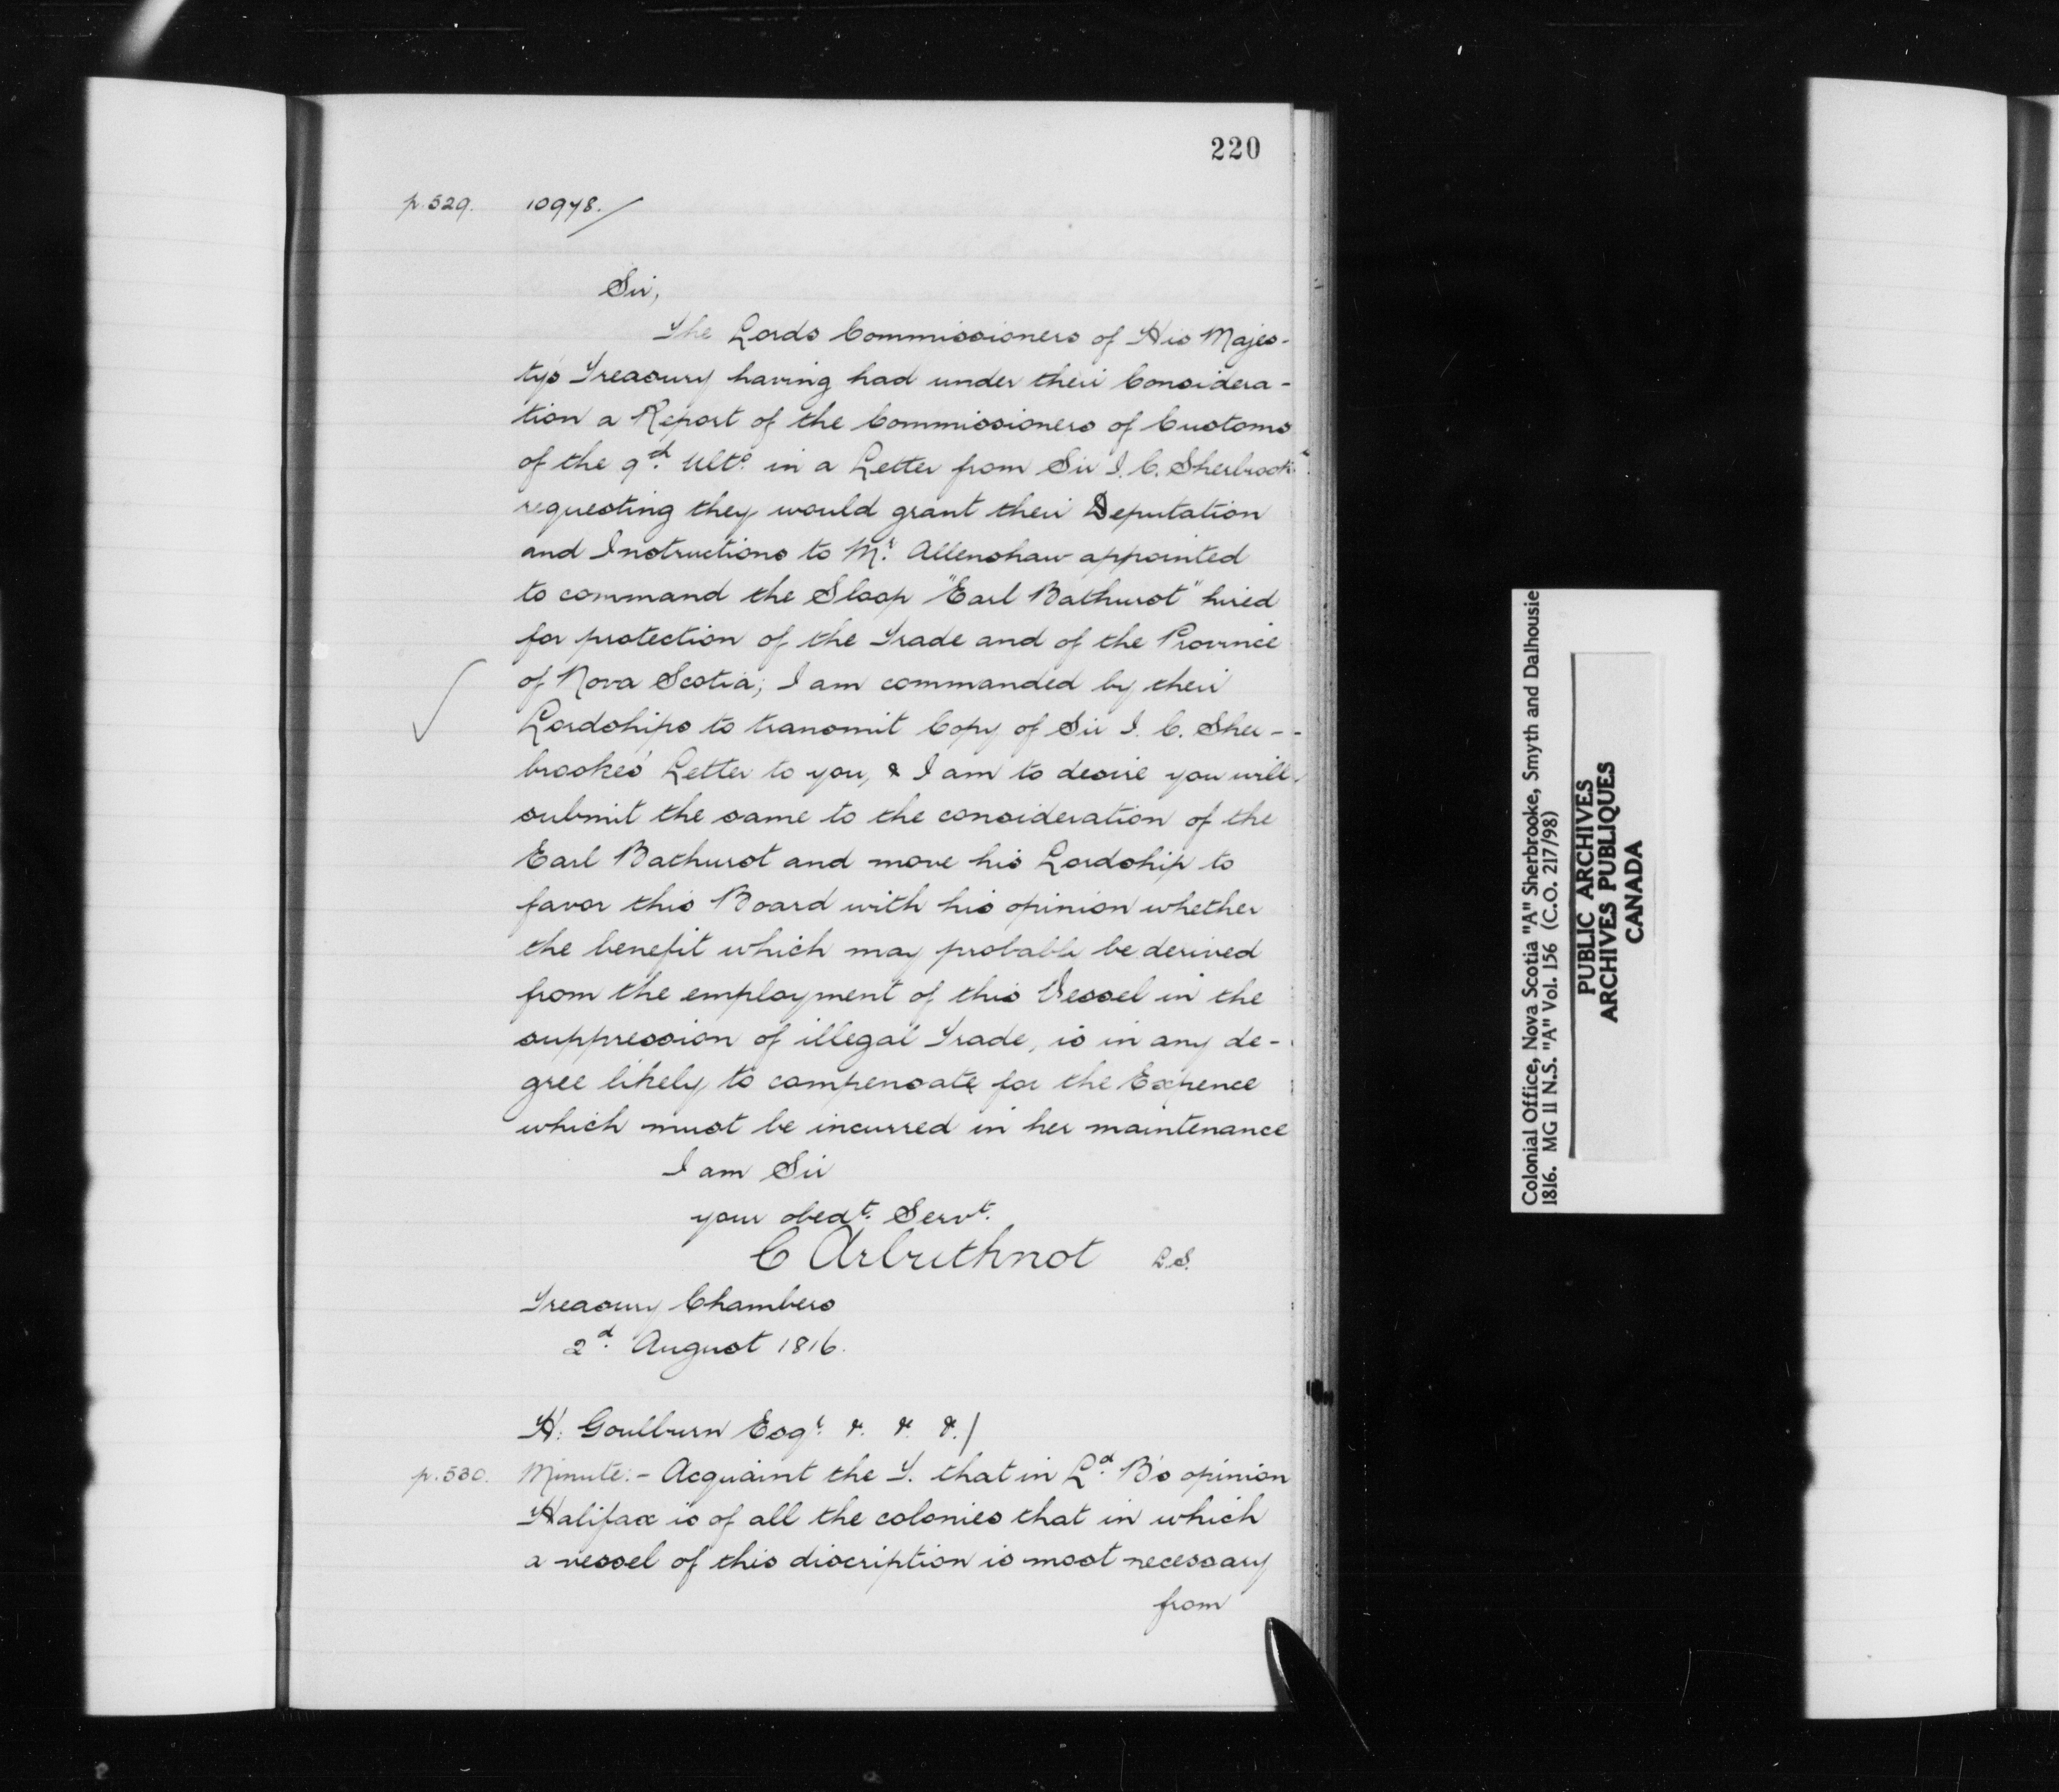 220
p.529. 10978./
Sir,
The Lords Commissioners of His Majes-
ty's Treasury having had under their Considera-
tion a Report of the Commissioners of Customs
of the 9th Ulto. in a Letter from Sir J. C. Sherbrooke
requesting they would grant their Deputation
and Instructions to Mr. Allenshaw appointed
to command the Sloop "Earl Bathurst" hired
for protection of the Trade and of the Province
of Nova Scotia; I am commanded by their
Lordships to transmit Copy of Sir J. C. Sher-
brooke's Letter to you, & I am to desire you will
submit the same to the consideration of the
Earl Bathurst and move his Lordship to
favor this Board with his opinion whether
the benefit which may probable be derived
from the employment of this Vessel in the
suppression of illegal Trade, is in any de-
gree likely to compensate for the Expence
which must be incurred in her maintenance
I am Sir
your obedt. Servt.
C Arbuthnot L.S.
Treasury Chambers
2d. August 1816.
H: Goulburn Esqr. &. &. &./
p.530. Minute:- Acquaint the T. that in Ld. B's opinion
Halifax is of all the colonies that in which
a vessel of this discription is most necessary
from
Colonial Office, Nova Scotia "A" Sherbrooke, Smyth and Dalhousie
1816. MG 11 N.S. "A" Vol. 156 (C.O. 217/98)
PUBLIC ARCHIVES
ARCHIVES PUBLIQUES
CANADA